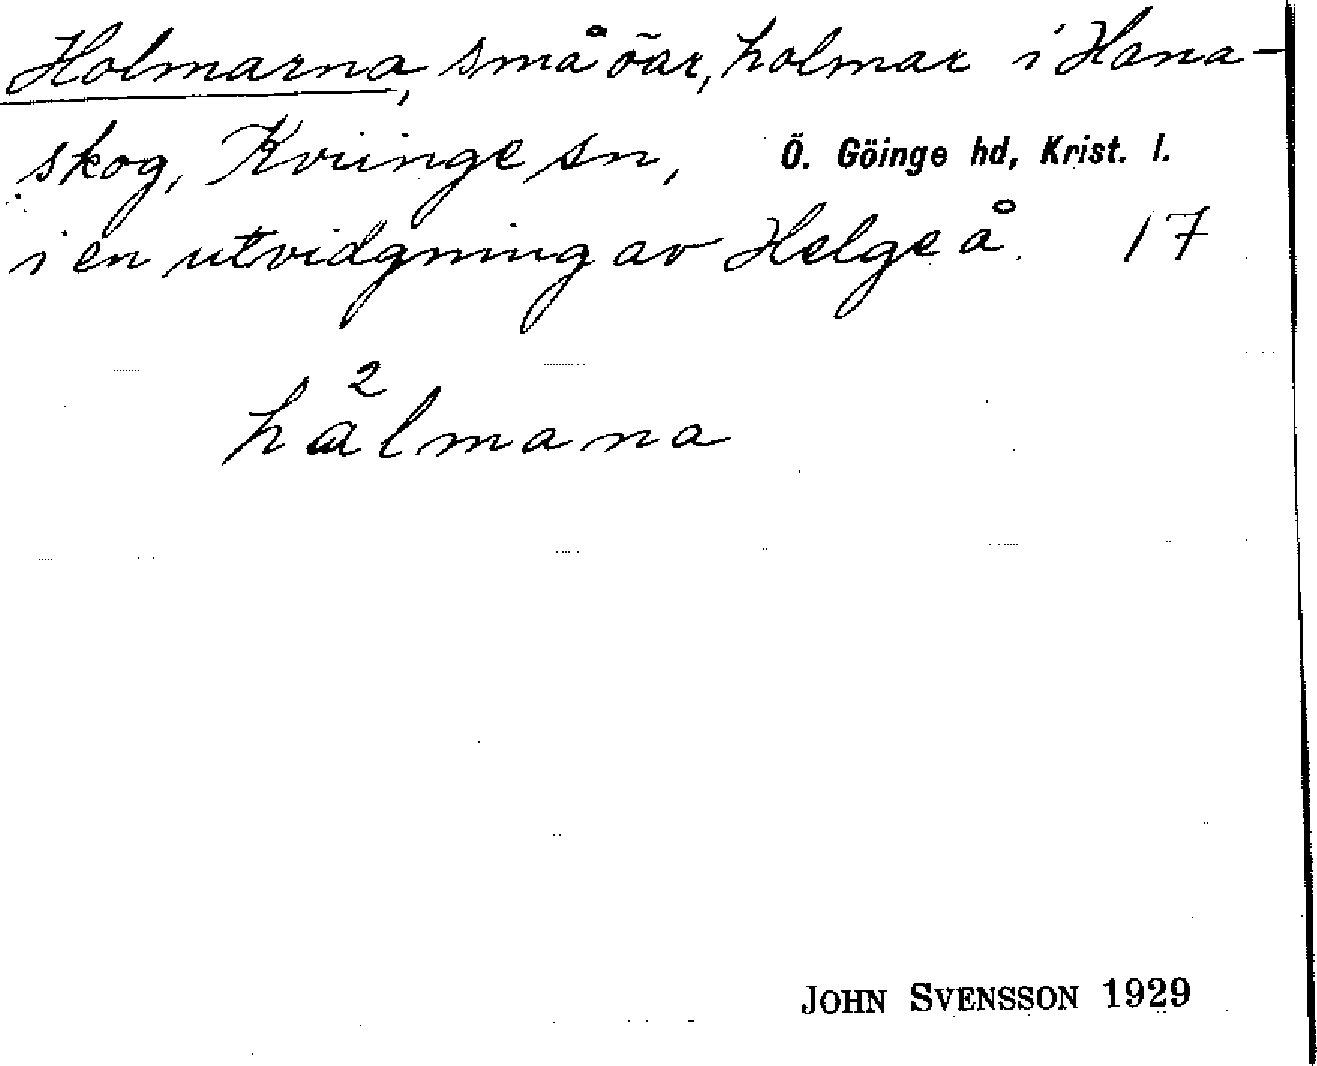 Holmarna, små öar, holmar i Hana-
skog, Kviinge sn, Ö. Göinge hd, Krist. l.
i en utvidgning av Helgeå. 17
2
hålmana
JOHN SVENSSON 1929